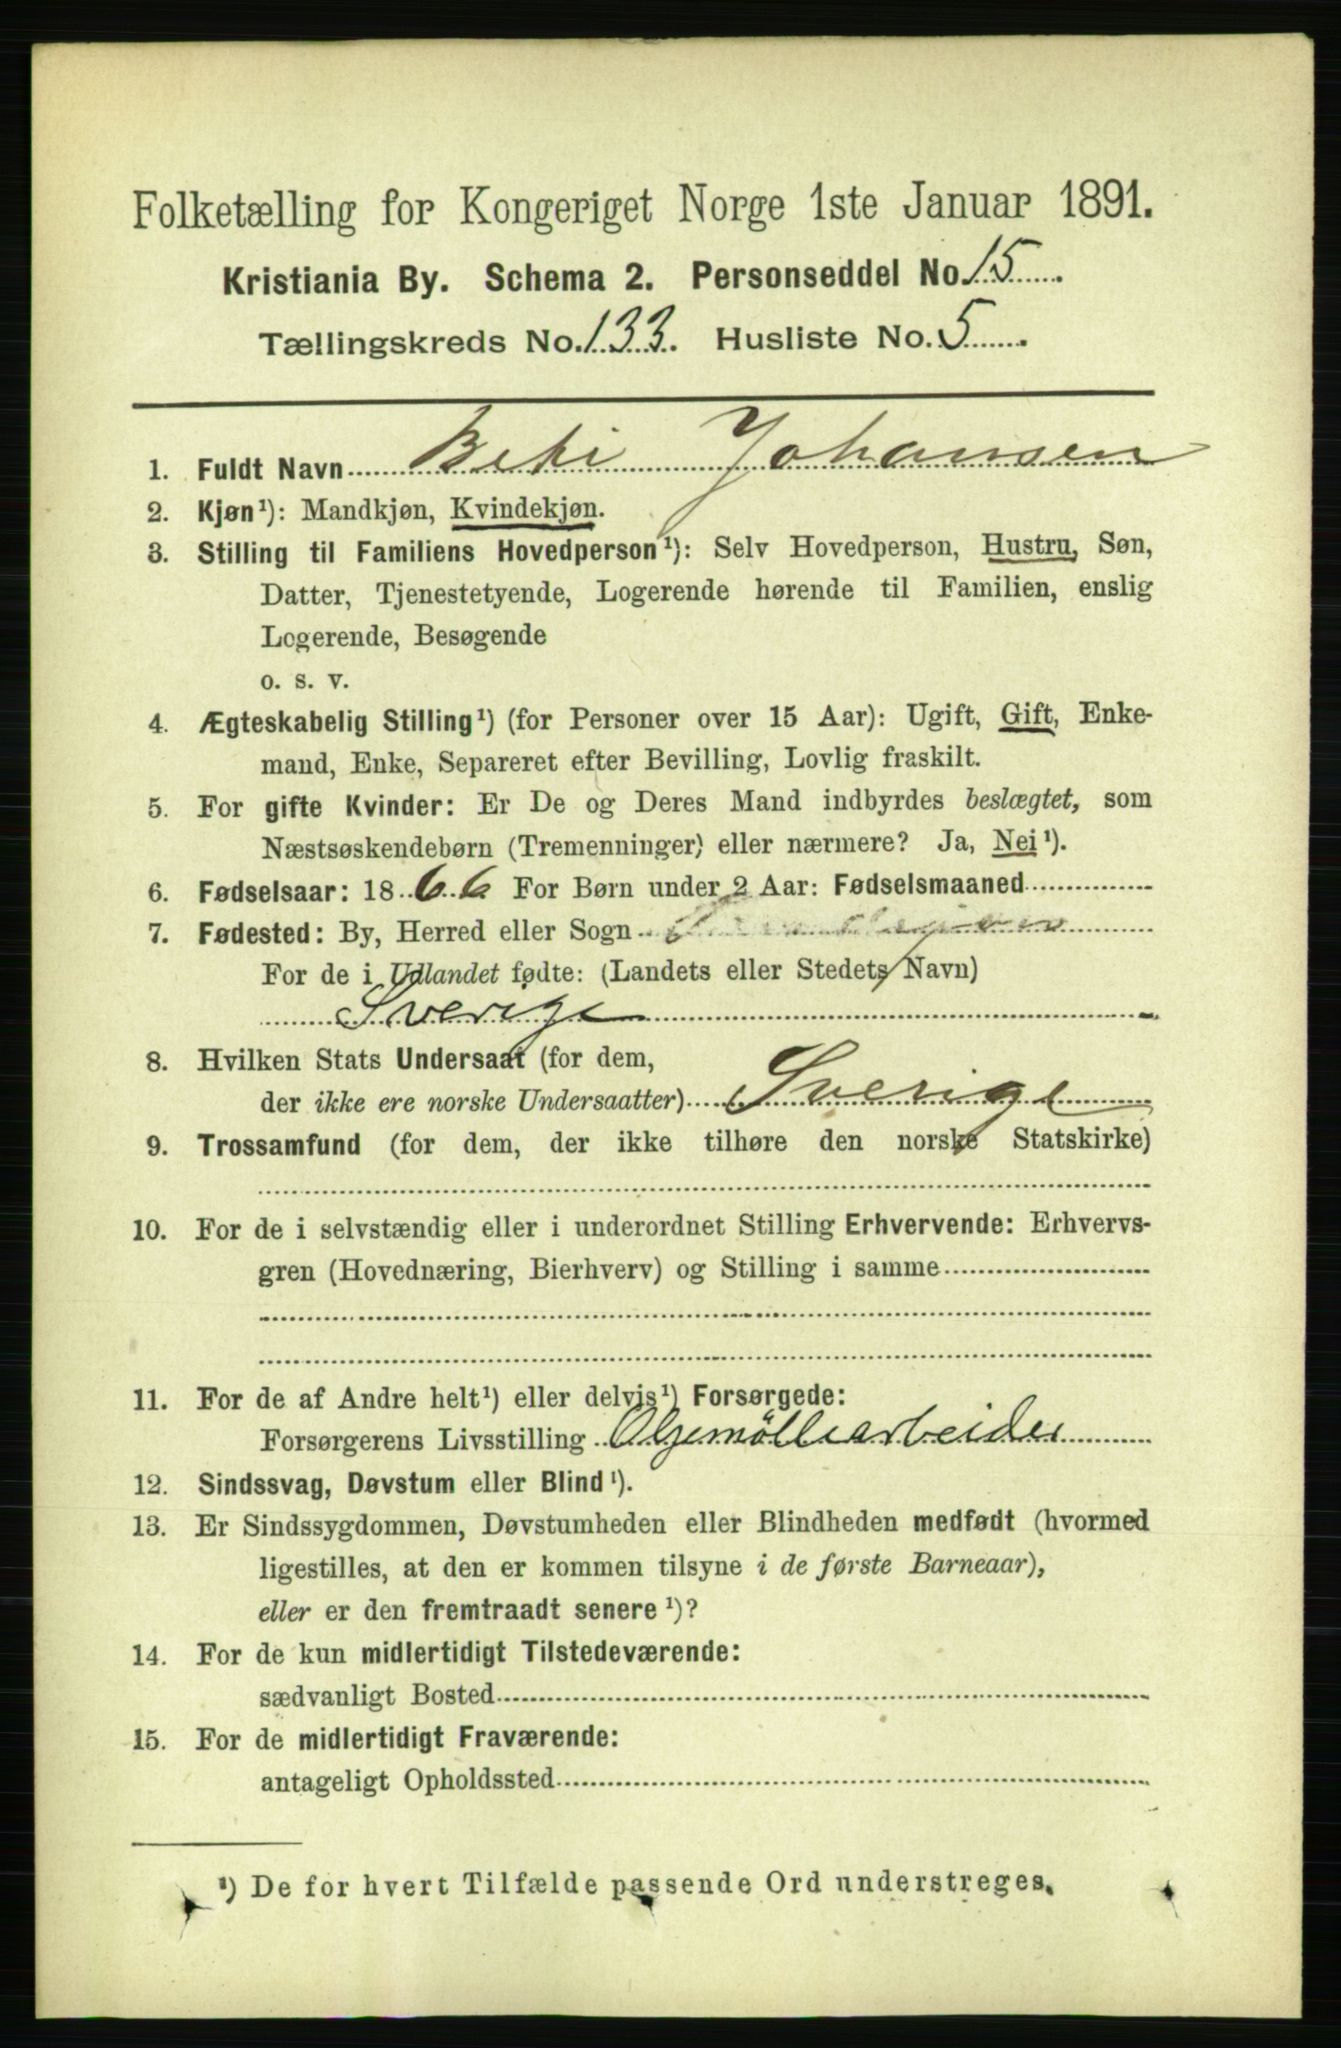 Folketælling for Kongeriget Norge 1ste Januar 1891.
Kristiania By. Schema 2. Personseddel No. 15
Tællingskreds No. 133. Husliste No. 5
1. Fuldt Navn Beti Johansen
2. Kjøn¹): Mandkjøn, Kvindekjøn.
3. Stilling til Familiens Hovedperson¹): Selv Hovedperson, Hustru, Søn,
Datter, Tjenestetyende, Logerende hørende til Familien, enslig
Logerende, Besøgende
o. s. v.
4. Ægteskabelig Stilling¹) (for Personer over 15 Aar): Ugift, Gift, Enke-
mand, Enke, Separeret efter Bevilling, Lovlig fraskilt.
5. For gifte Kvinder: Er De og Deres Mand indbyrdes beslægtet, som
Næstsøskendebørn (Tremenninger) eller nærmere? Ja, Nei¹).
6. Fødselsaar: 1866 For Børn under 2 Aar: Fødselsmaaned
7. Fødested: By, Herred eller Sogn
For de i Udlandet fødte: (Landets eller Stedets Navn)
Sverige
8. Hvilken Stats Undersaat (for dem,
der ikke ere norske Undersaatter) Sverige
9. Trossamfund (for dem, der ikke tilhøre den norske Statskirke)
10. For de i selvstændig eller i underordnet Stilling Erhvervende: Erhvervs-
gren (Hovednæring, Bierhverv) og Stilling i samme
11. For de af Andre helt¹) eller delvis¹) Forsørgede:
Forsørgerens Livsstilling Oljemöllearbeider
12. Sindssvag, Døvstum eller Blind¹).
13. Er Sindssygdommen, Døvstumheden eller Blindheden medfødt (hvormed
ligestilles, at den er kommen tilsyne i de første Barneaar),
eller er den fremtraadt senere¹)?
14. For de kun midlertidigt Tilstedeværende:
sædvanligt Bosted
15. For de midlertidigt Fraværende:
antageligt Opholdssted
¹) De for hvert Tilfælde passende Ord understreges.